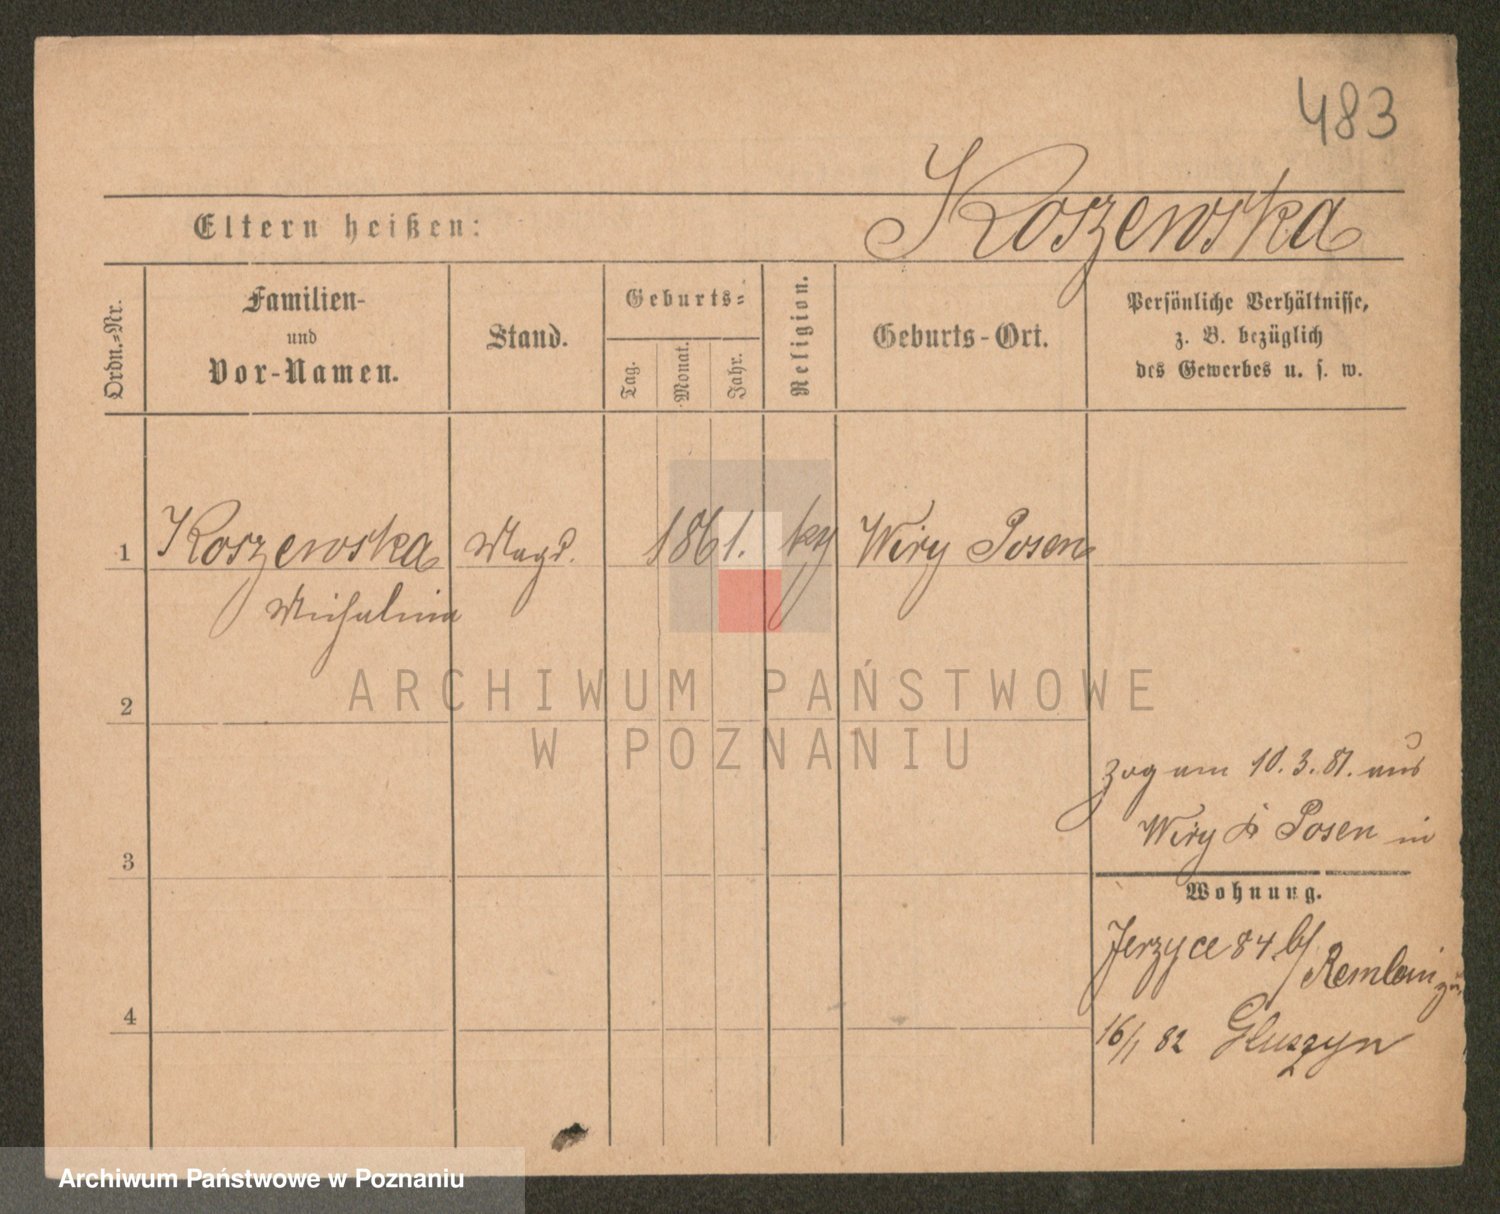 483
Koszewska
Eltern heißen:
Ordn.-Nr.
Familien-
und
Vor-Namen.
Stand.
Geburts-
Tag.
Monat.
Jahr.
Religion.
Geburts-Ort.
Persönliche Verhältnisse,
z. B. bezüglich
des Gewerbes u. s. w.
1 Koszewska Magd. 1861. Wiry Posen
Michalina
ARCHIWUM PAŃSTWOWE
W POZNANIU
2
zog am 10. 3. 81. aus
Wiry Posen in
3
Wohnung.
Jerzyce 84 b/
Remlein
4
16/1 82 Gluszyn
Archiwum Państwowe w Poznaniu